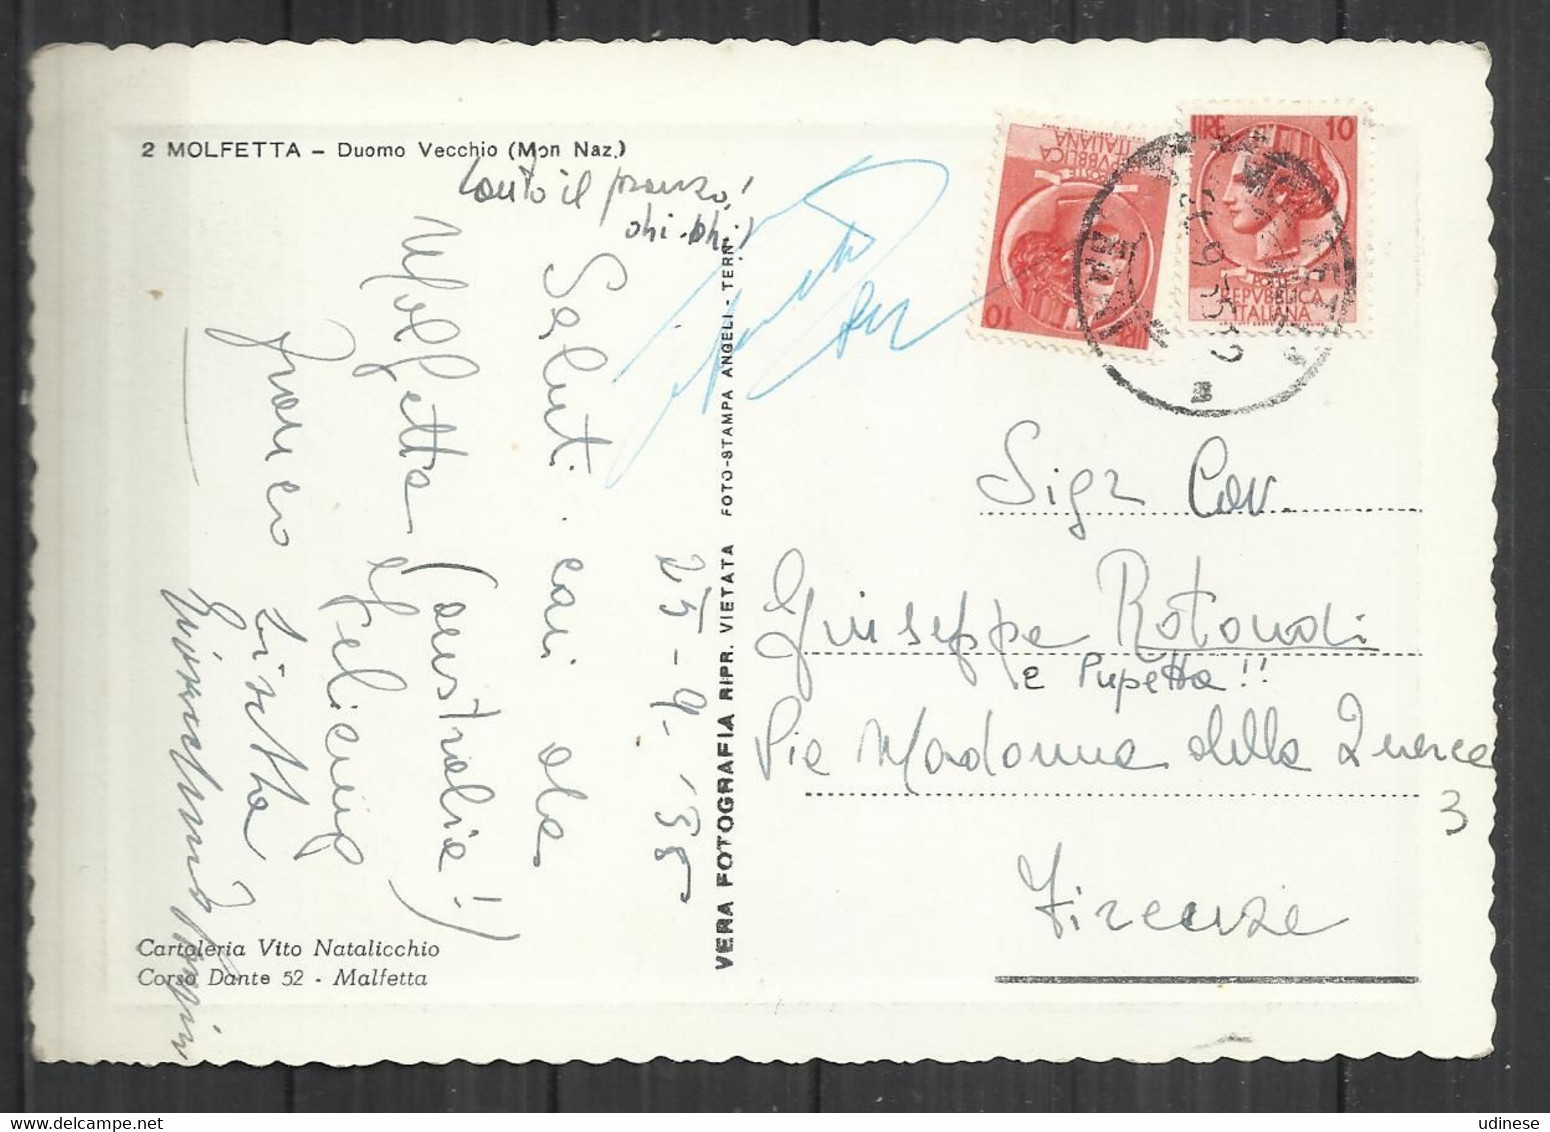 2 MOLFETTA – Duomo Vecchio (Mon Naz.)
il pranzo!
ohi ohi!
25-9-'55
Saluti cari da
Molfetta (australia!!)
Franco e Felicina
Lisetta
VERA FOTOGRAFIA RIPR. VIETATA FOTO-STAMPA ANGELI - TERNI
LIRE 10
REPVBBLICA
ITALIANA
10
REPVBBLICA
ITALIANA
Sigr Cav.
Giuseppe Rotondi
e Pupetta!!
Via Madonna della Querce
3
Firenze
Cartoleria Vito Natalicchio
Corso Dante 52 - Malfetta
udinese